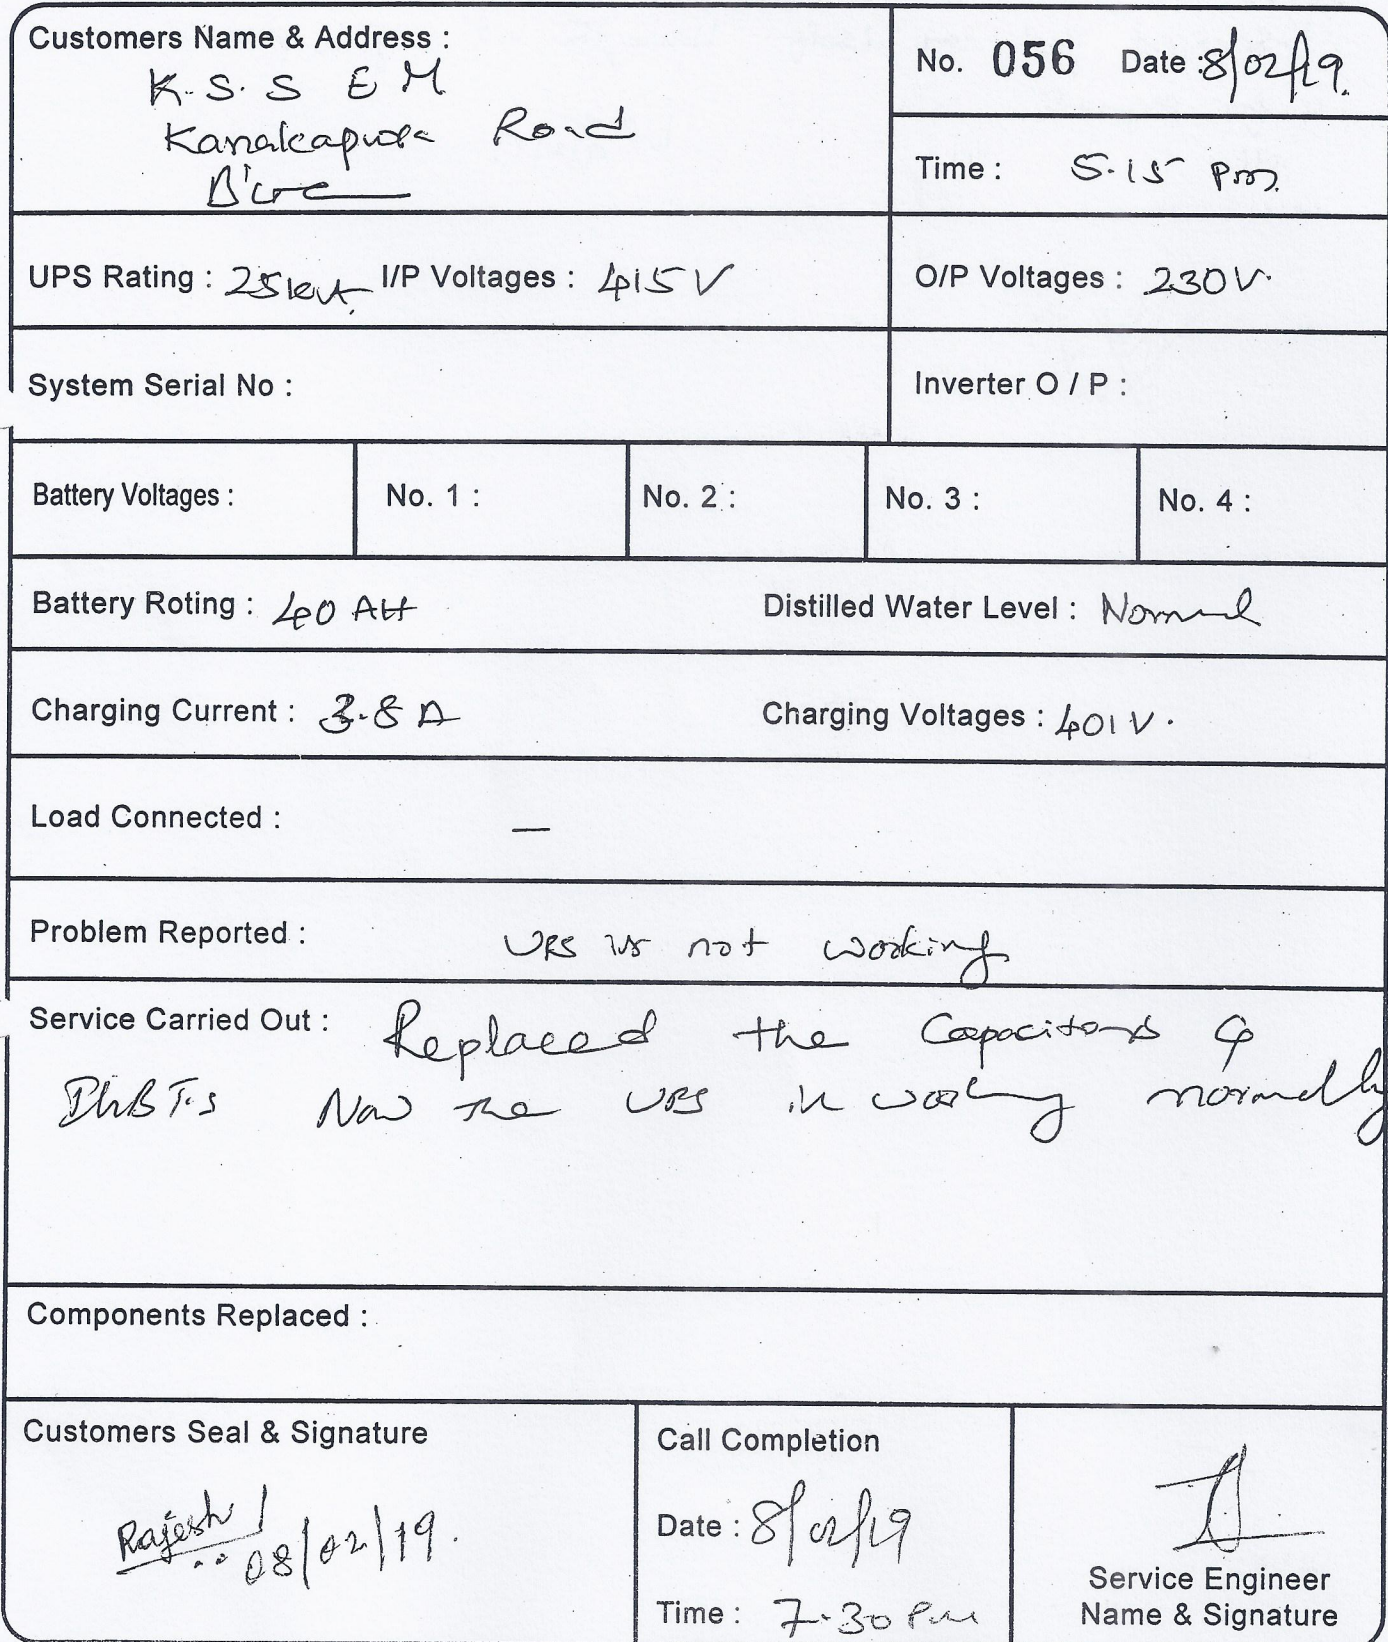 Customers Name & Address :
K.S.S E M
Kanakapura Road
B'lore
No. 056 Date : 8/02/19.
Time : 5.15 Pm
UPS Rating : 25kva I/P Voltages : 415V
O/P Voltages : 230V.
System Serial No :
Inverter O / P :
Battery Voltages : No. 1 : No. 2 : No. 3 : No. 4 :
Battery Roting : 40 AH Distilled Water Level : Normal
Charging Current : 3.8 A Charging Voltages : 401V.
Load Connected : —
Problem Reported : UPS is not working
Service Carried Out : Replaced the Capacitors &
IGBT's Now the UPS is working normally
Components Replaced :
Customers Seal & Signature
Rajesh
08/02/19.
Call Completion
Date : 8/02/19
Time : 7.30 Pm
Service Engineer
Name & Signature